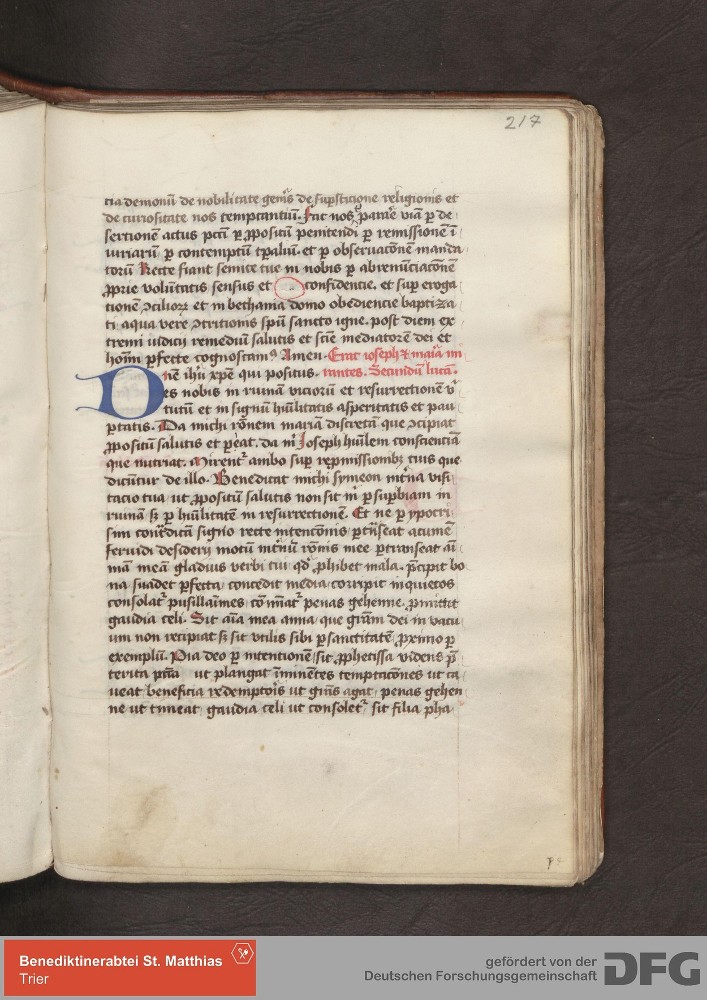 217
cia demonũ de nobilitate genĩs de suꝑsticione religionis et
de curiositate nos temptantiũ. Fac nos parare viã ꝑ de
sertionẽ actus pctĩ ꝑ ꝓpositũ penitendi ꝑ remissionẽ ĩ
iuriarũ ꝑ contemptũ tꝑaliũ. et ꝑ obseruacõnẽ manda
torũ Recte fiant semite tue in nobis ꝑ abrenũciacõnẽ
ꝓprie volũtatis sensus et confidencie. et suꝑ eroga
tionẽ ↄcilioꝝ et in bethania domo obediencie baptiza
ti aqua vere ↄtritionis spũ sancto igne. post diem ex
tremi iudicij remediũ salutis et scĩe mediatorẽ dei et
hoĩm ꝑfecte cognoscamꝰ Amen. Erat ioseph et maria mi
Dñe ihũ xp̃e qui positus. rantes. Secundũ lucã.
es nobis in ruinã viciorũ et resurrectionẽ v̾
tutũ et in signũ hũilitatis asperitatis et pau
ꝑtatis. Da michi rõnem mariã discretã que ↄcipiat
ꝓpositũ salutis et pariat. da m̾ Joseph hũilem conscienciã
que nutriat. Mirent᷑ ambo suꝑ repromissionibꝫ tuis que
dicũtur de illo. Benedicat michi symeon int̾na visi
tacio tua ut ꝓpositũ salutis non sit m̾ ꝑ suꝑbiam in
ruinã sꝫ ꝑ hũilitatẽ in resurrectionẽ. Et ne ꝑ ypocri
sim cont̾dicã signo recte intencõnis ꝑt̾nseat acumẽ
feruidi desiderij motũ int̾nũ rõnis mee ꝑtranseat aĩ
mã meã gladius verbi tui qđ ꝓhibet mala. p̾cipit bo
na suadet ꝑfecta concedit media corripit inquietos
consolat᷑ pusillaĩmes cõminat᷑ penas gehenne. ꝓmittit
gaudia celi. Sit aĩa mea anna que grãm dei in vacu
um non recipiat sꝫ sit vtilis sibi ꝑ sanctitatẽ ꝓximo ꝑ
exemplũ. Pia deo ꝑ intentionẽ sit ꝓphetissa videns p̾
terita pctã ut plangat ĩminẽtes temptacõnes ut ca
ueat beneficia redemptoris ut grãs agat penas gehen
ne ut timeat gaudia celi ut consolet᷑ sit filia pha
Benediktinerabtei St. Matthias
Trier
gefördert von der
Deutschen Forschungsgemeinschaft
DFG